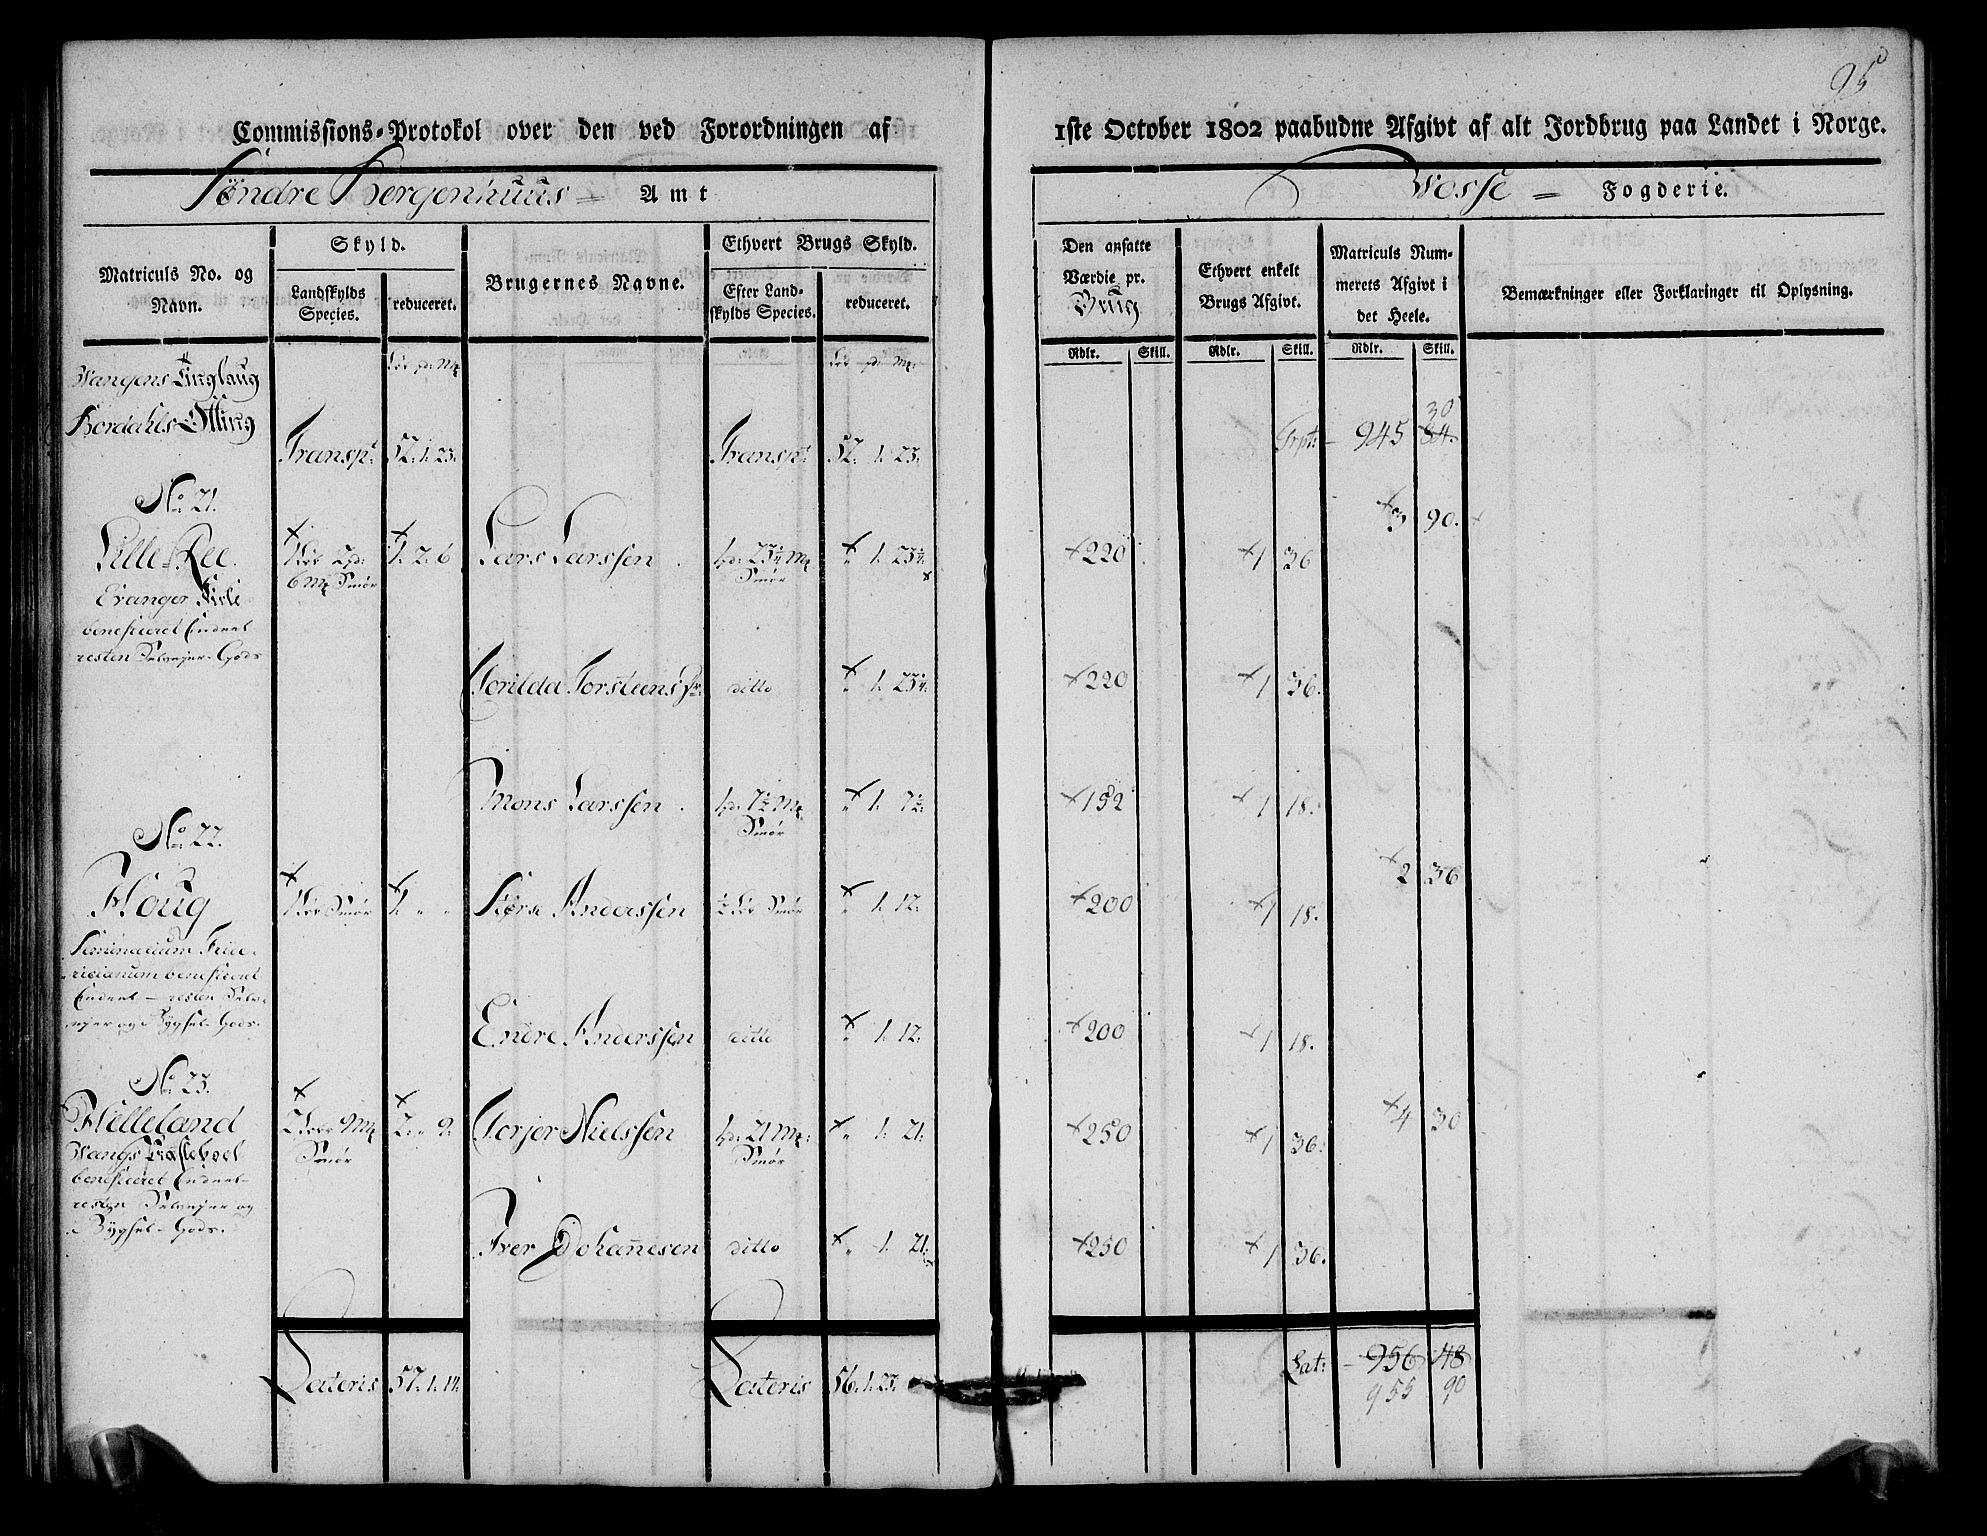 95
Commissions-Protokol over den ved Forordningen af
1ste October 1802 paabudne Afgivt af alt Jordbrug paa Landet i Norge.
Søndre Bergenhuus Amt
Wosse Fogderie.
Matriculs No. og Navn.
Skyld.
Landskylds Species.
reduceret.
Brugernes Navne.
Ethvert Brugs Skyld.
Efter Landskylds Species.
reduceret.
Den ansatte Værdie pr. Brug
Ethvert enkelt Brugs Afgivt.
Matriculs Nummerets Afgivt i det Heele.
Bemærkninger eller Forklaringer til Oplysning.
Rdlr. Skill. Rdlr. Skill. Rdlr. Skill.
Wangens Tinglaug
Bordahls Otting
Transpt: 52. 1. 23. Transpt 52. 1. 23. Trpt: 945 84. 30
No 21.
3 90.
Lille Ree. 1 Løb 2 pd: 6 mk Smør 1. 2. 6 Lars Larssen 1 pd: 23 1/4 mk Smør " 1. 23 1/4 220 1 36
Evanger Kirke
beneficeret
resten Selvejer-Gods
Torilda Torsteensdr. ditto " 1. 23 1/4. 220 1 36.
Mons Larssen. 1 pd: 7 1/2 mk Smør " 1. 7 1/2. 152 1 18.
No 22.
2 36
Houg 1 Løb Smør 1. " " Siurse Anderssen 1/2 Løb Smør " 1. 12. 200 1 18.
Seminarium Frie-
ricianum beneficeret
resten Selv-
ejer og Bygsel-Gods.
Endre Anderssen ditto " 1. 12. 200 1 18.
No 23.
4 30
Helleland 2 Løb 9 mk Smør 2. " 9. Torjer Nielssen 1 pd: 21 mk: Smør " 1. 21. 250 1 36.
Wangs Præsteboel
beneficeret
resten Selvejer og
Bygsel-Gods.
Iver Johannesen ditto " 1. 21. 250 1 36.
Lateris 57. 1. 14. Lateris 56. 1. 23. Lat: 956 48
955 90